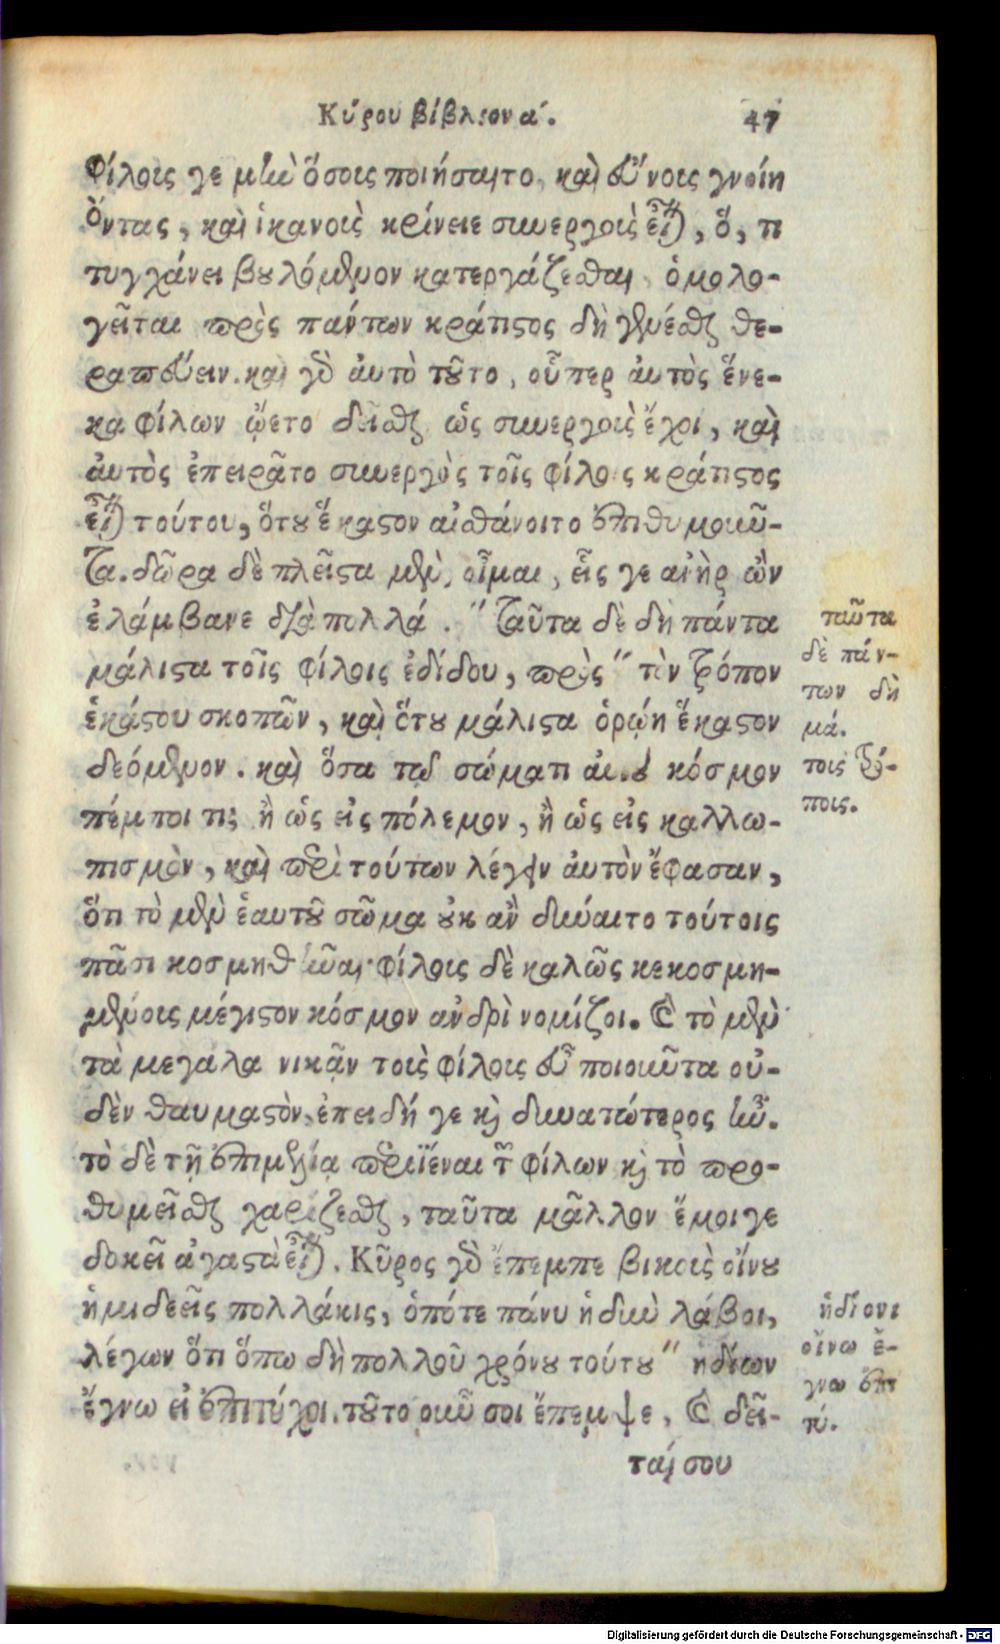 Κύρου βίβλιον α΄. 47
φίλοις γε μὴν ὅσοις ποιήσαιτο, καὶ εὔνοις γνοίη
ὄντας, καὶ ἱκανοὺς κρίνειε συνεργοὺς εἶναι, ὅ, τι
τυγχάνει βουλόμενον κατεργάζεσθαι, ὁμολο-
γεῖται πρὸς πάντων κράτιστος δὴ γενέσθαι θε-
ραπεύειν. καὶ γὰρ αὐτὸ τοῦτο, οὗπερ αὐτὸς ἕνε-
κα φίλων ᾤετο δεῖσθαι ὡς συνεργοὺς ἔχοι, καὶ
αὐτὸς ἐπειρᾶτο συνεργὸς τοῖς φίλοις κράτιστος
εἶναι τούτου, ὅτου ἕκαστον αἰσθάνοιτο ἐπιθυμοῦν-
τα. δῶρα δὲ πλεῖστα μὲν, οἶμαι, εἷς γε ἀνὴρ ὢν
ἐλάμβανε διὰ πολλά. " ταῦτα δὲ δὴ πάντα
μάλιστα τοῖς φίλοις ἐδίδου, πρὸς " τὸν τρόπον
ἑκάστου σκοπῶν, καὶ ὅτου μάλιστα ὁρῴη ἕκαστον
δεόμενον. καὶ ὅσα τῷ σώματι αὐτοῦ κόσμον
πέμποι τις ἢ ὡς εἰς πόλεμον, ἢ ὡς εἰς καλλω-
πισμὸν, καὶ περὶ τούτων λέγειν αὐτὸν ἔφασαν,
ὅτι τὸ μὲν ἑαυτοῦ σῶμα οὐκ ἂν δύναιτο τούτοις
πᾶσι κοσμηθῆναι· φίλοις δὲ καλῶς κεκοσμη-
μένοις μέγιστον κόσμον ἀνδρὶ νομίζοι. καὶ τὸ μὲν
τὰ μεγάλα νικᾷν τοὺς φίλοις εὖ ποιοῦντα οὐ-
δὲν θαυμαστὸν, ἐπειδή γε καὶ δυνατώτερος ἦν.
τὸ δὲ τῇ ἐπιμελείᾳ περιϊέναι τῶν φίλων καὶ τὸ προ-
θυμεῖσθαι χαρίζεσθαι, ταῦτα μᾶλλον ἔμοιγε
δοκεῖ ἀγαστὰ εἶναι. Κῦρος γὰρ ἔπεμπε βίκους οἴνου
ἡμιδεεῖς πολλάκις, ὁπότε πάνυ ἡδὺν λάβοι,
λέγων ὅτι ὅπω δὴ πολλοῦ χρόνου τούτου " ἡδίων
ἔγνω εἰ ἐπιτύχοι. τοῦτο οὖν σοι ἔπεμψε, καὶ δεῖ-
ταί σου
ταῦτα
δὲ πάν-
των δὴ
μά.
τοῖς τρό-
ποις.
ἡδίονι
οἴνῳ ἔ-
γνω ἐπι
τύ.
Digitalisierung gefördert durch die Deutsche Forschungsgemeinschaft - DFG